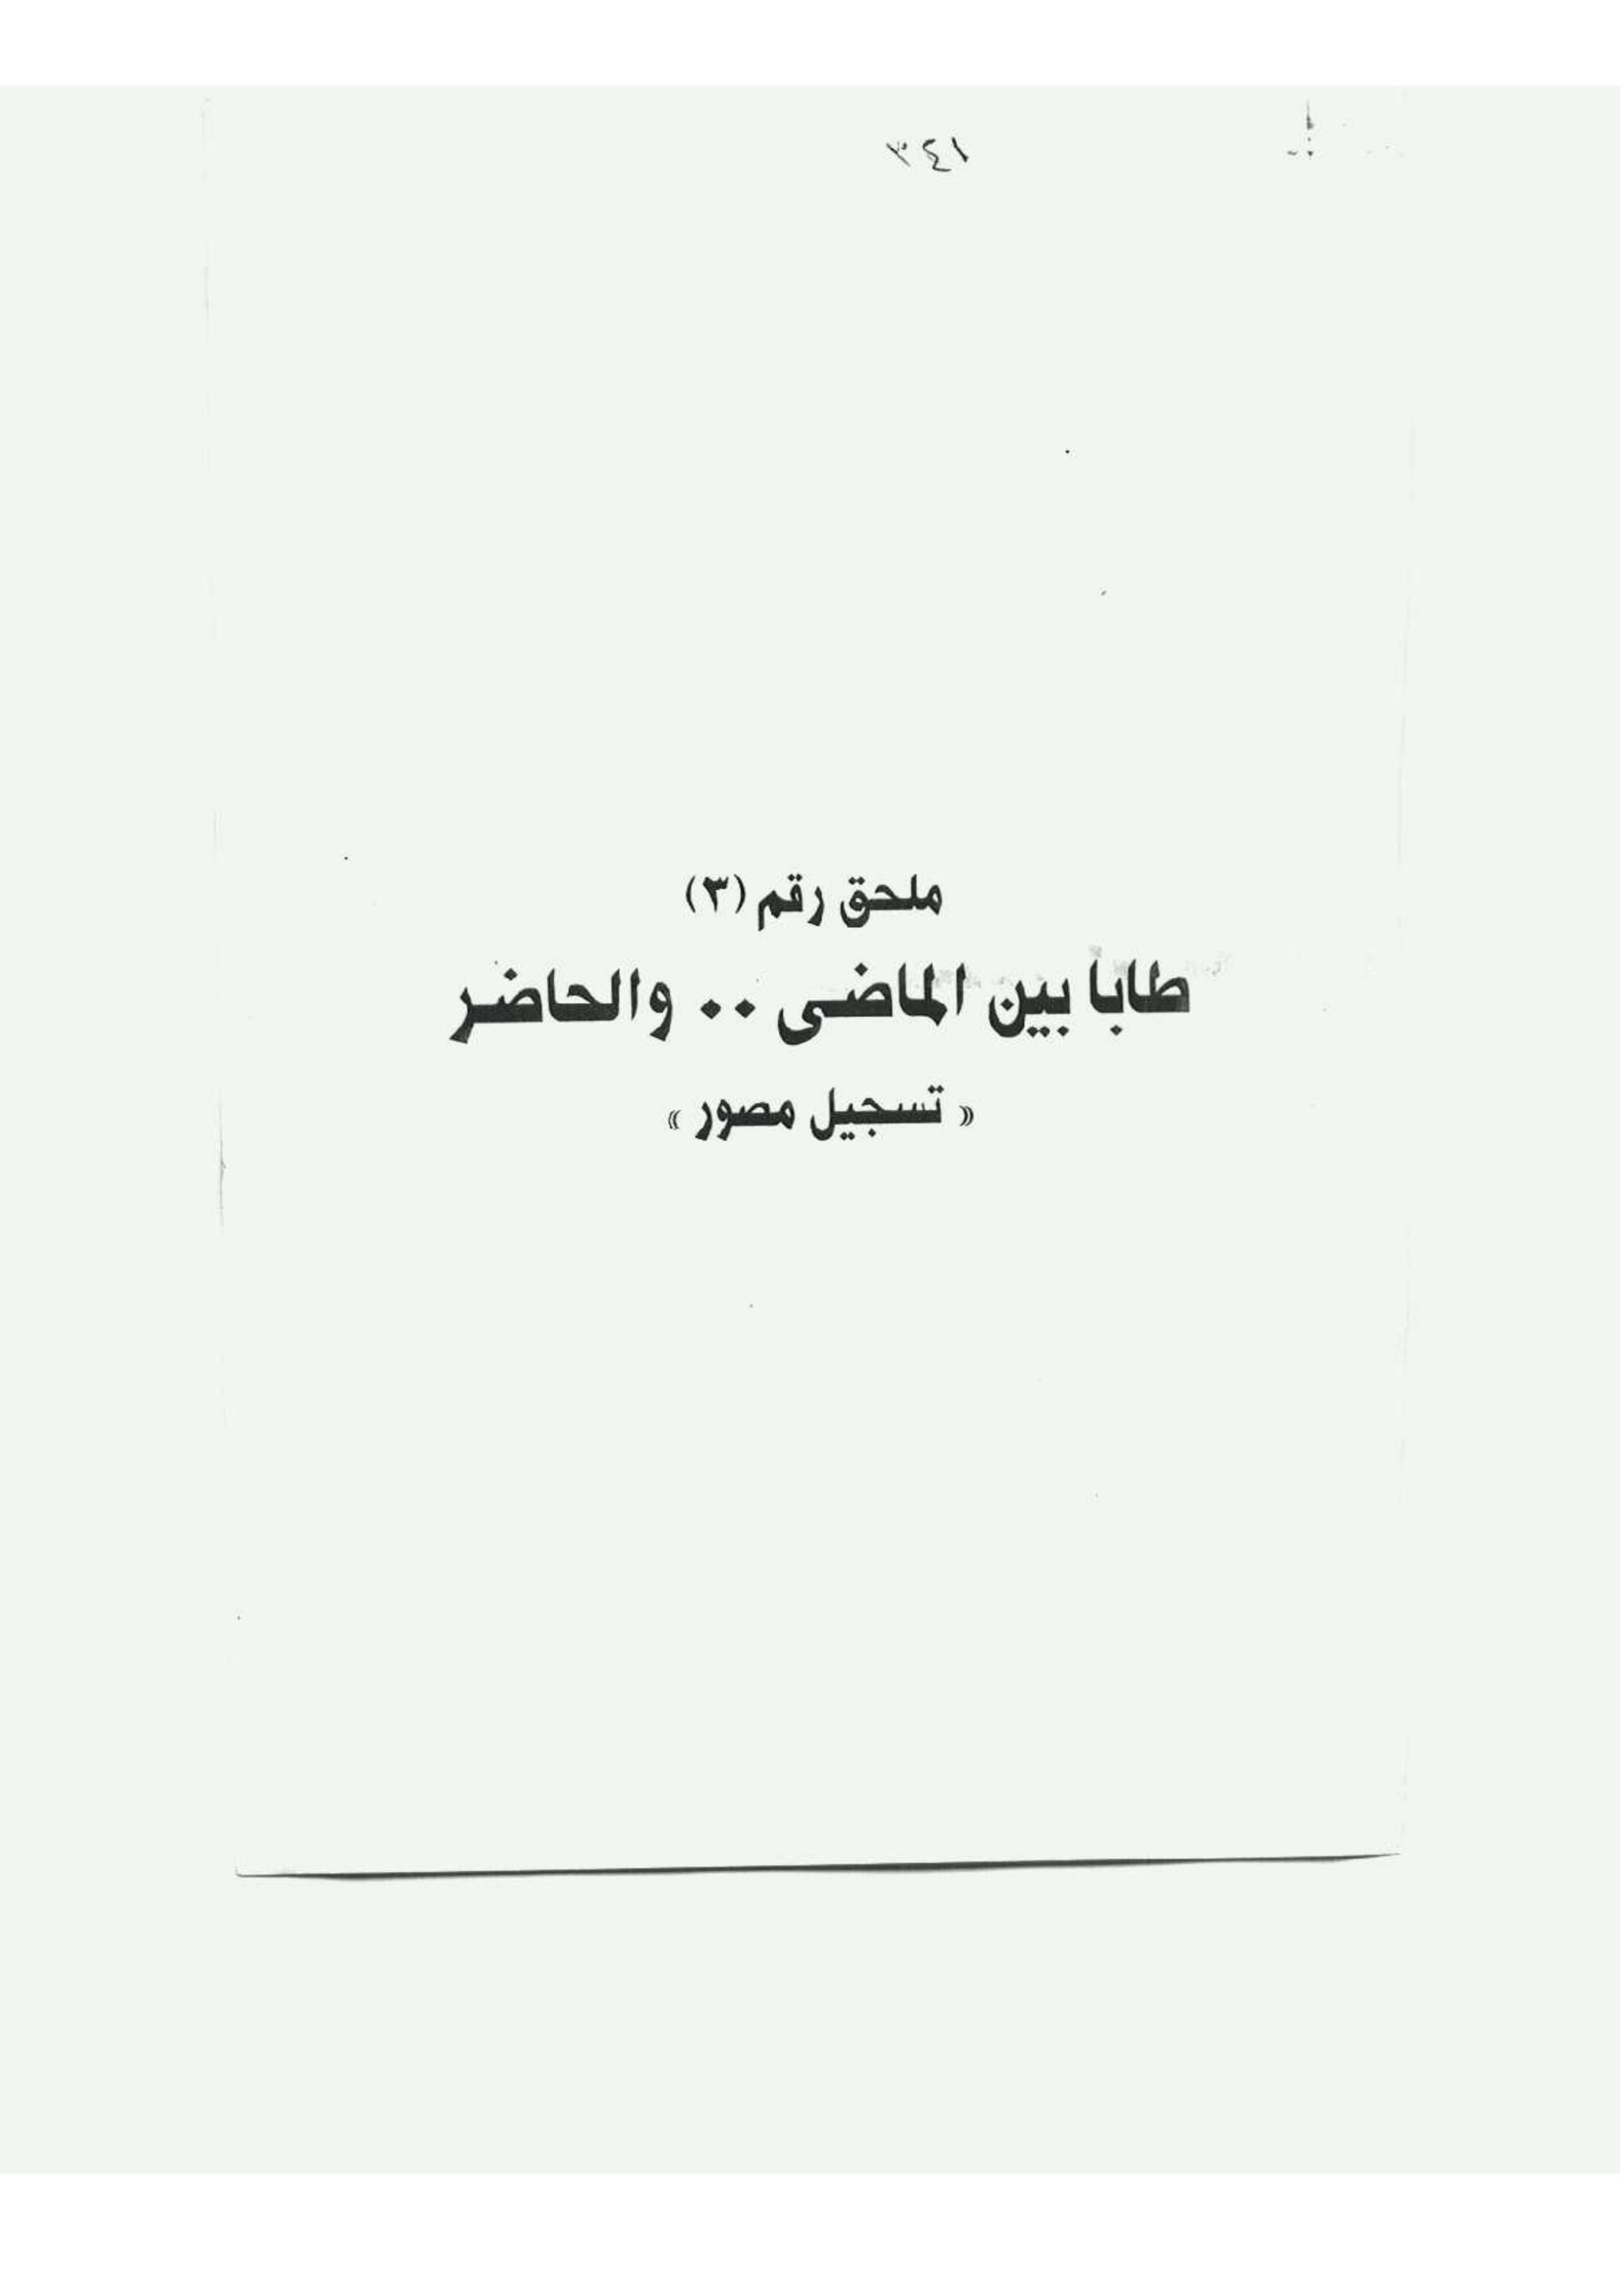 ٣٤١
ملحق رقم (٣)
طابا بين الماضى .. والحاضر
« تسجيل مصور »